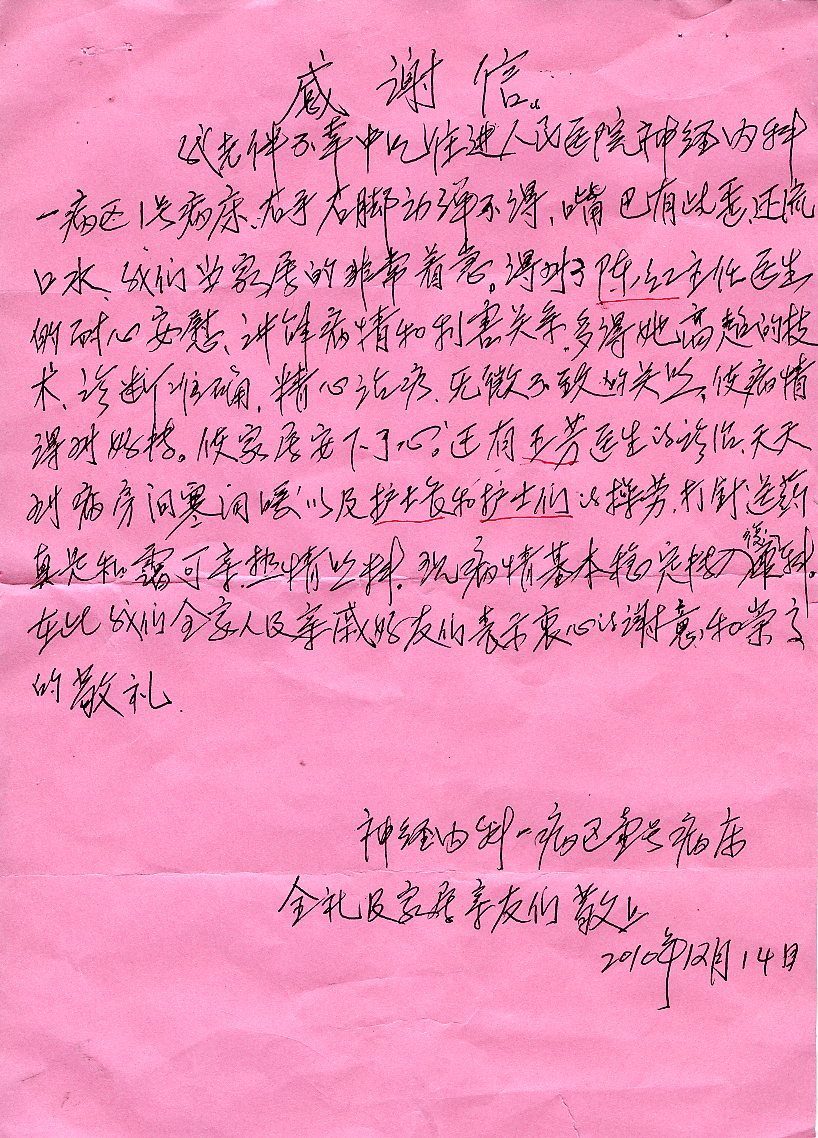 感谢信
我老伴不幸中风住进人民医院神经内科
一病区1号病床、右手右脚动弹不得、嘴巴有些歪、还流
口水、我们当家属的非常着急。得到了陈红主任医生
的耐心安慰、讲解病情和利害关系、多得她高超的技
术、诊断准确、精心治疗、无微不致的关照、使病情
得到好转。使家属安下了心。还有玉芳医生的诊治、天天
到病房问寒问暖以及护士长和护士们的操劳、打针送药
真是和蔼可亲、热情照料。现病情基本稳定转入
在此我们全家人及亲戚好友们表示衷心的谢意和崇高
的敬礼
神经内科一病区壹号病床
全礼及家属亲友们敬上
2010年12月14日